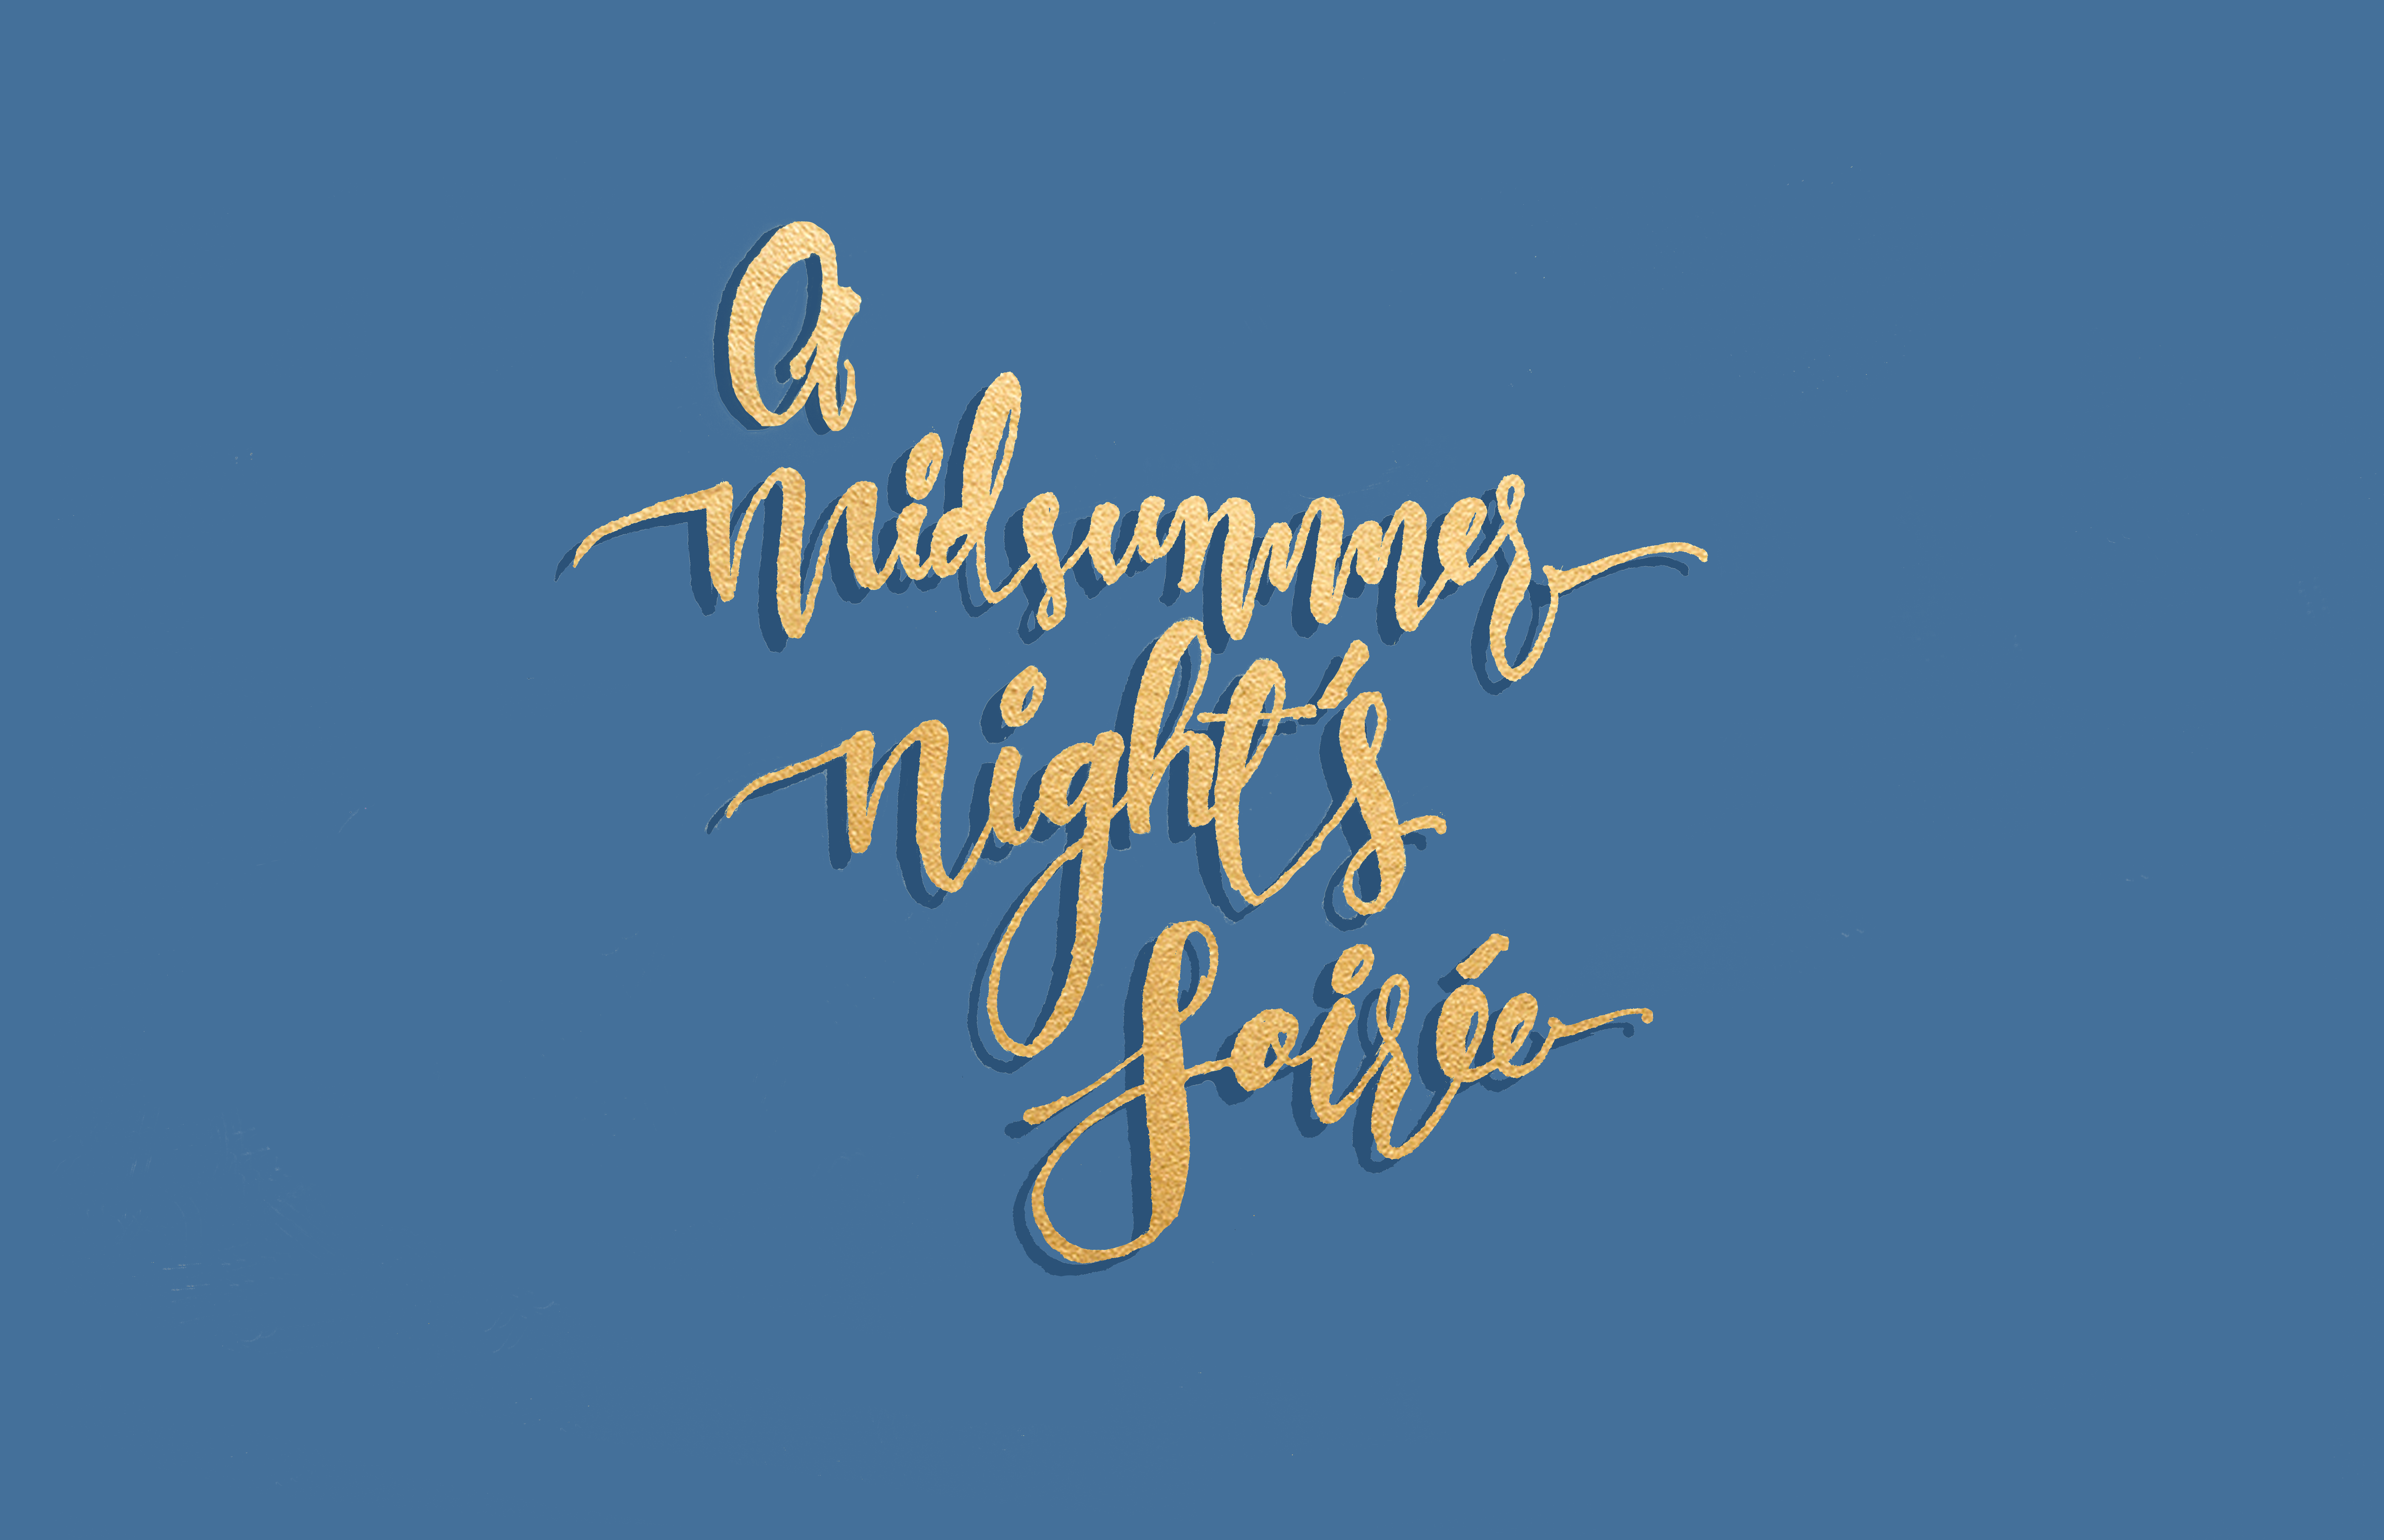 a
Midsummer
night's
Soirée